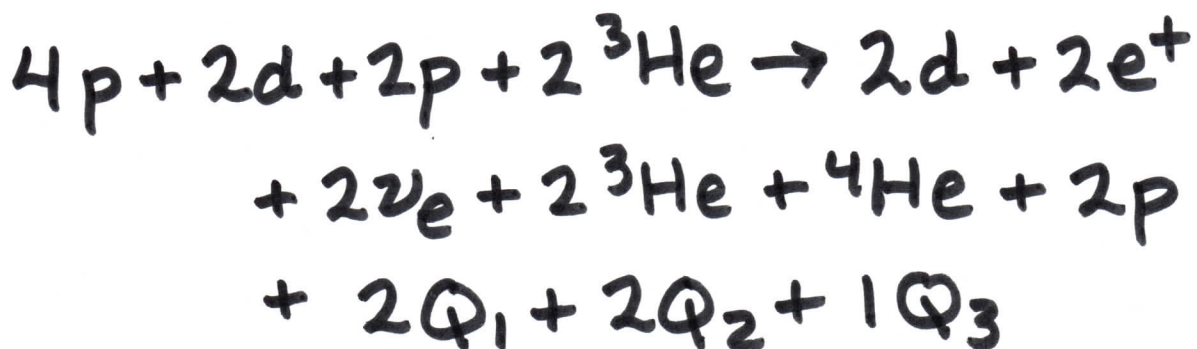 4p + 2d + 2p + 2 ³He → 2d + 2e⁺
+ 2νₑ + 2 ³He + ⁴He + 2p
+ 2Q₁ + 2Q₂ + 1Q₃